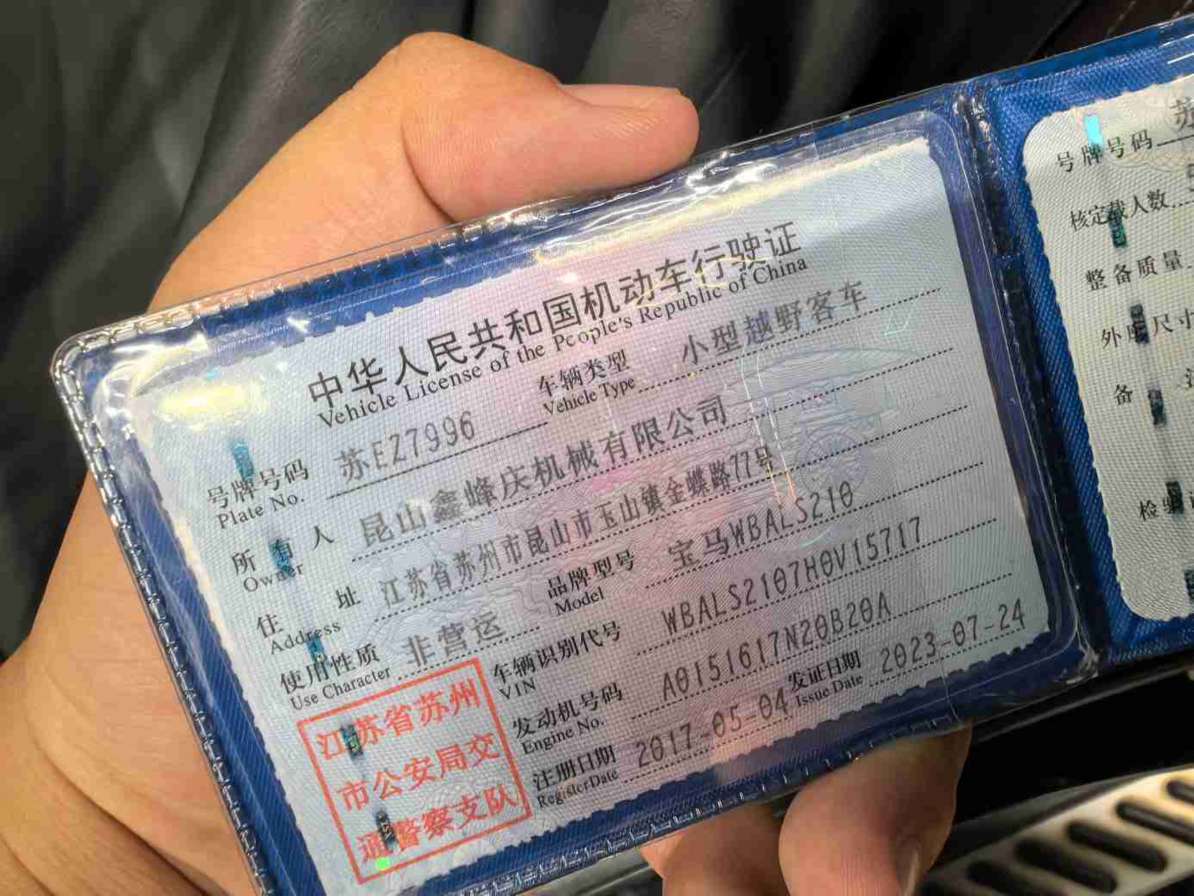 中华人民共和国机动车行驶证
Vehicle License of the People's Republic of China
号牌号码 苏EZ7996 车辆类型 小型越野客车
Plate No. Vehicle Type
所有人 昆山鑫峰庆机械有限公司
Owner
住址 江苏省苏州市昆山市玉山镇金蝶路77号
Address
使用性质 非营运 品牌型号 宝马WBALS210
Use Character Model
车辆识别代号 WBALS2107H0V15717
VIN
发动机号码 A0151617N20B20A
Engine No.
注册日期 2017-05-04 发证日期 2023-07-24
Register Date Issue Date
江苏省苏州
市公安局交
通警察支队
号牌号码 苏
核定载人数
整备质量
外廓尺寸
备
检验